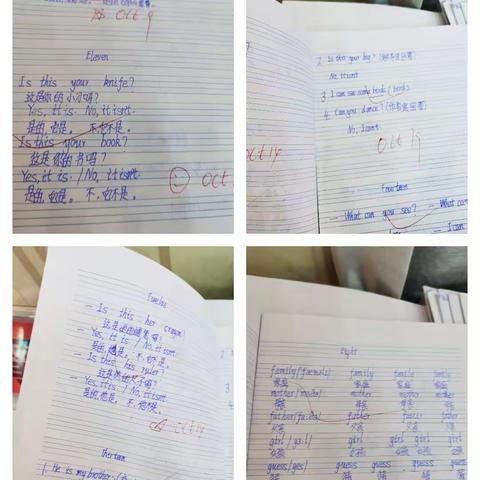 Oct 9
Eleven
Is this your knife?
这是你的小刀吗?
Yes, it is. No, it isn't.
是的,它是。不,它不是。
Is this your book?
这是你的书吗?
Yes, it is. / No, it isn't.
是的,它是。不,它不是。
Oct
2. Is this your bag?
No, it isn't
3. I can see some birds. (bird)
4. Can you dance?
No, I can't.
Oct 14
Fourteen
— What can you see? — What can
— I can
Twelve
— Is this her crayon?
— Yes, it is. / No, it isn't.
是的,它是。不,它不是。
— Is this his ruler?
这是他的尺子吗?
— Yes, it is. / No, it isn't.
是的,它是。不,它不是。
Oct 14
Thirteen
1. He is my brother.
Eight
family family family family
家庭 家庭 家庭 家庭
mother mother mother mother
father father father father
父亲 父亲 父亲 父亲
girl girl girl girl
女孩 女孩 女孩 女孩
guess guess guess guess
猜 猜 猜 猜